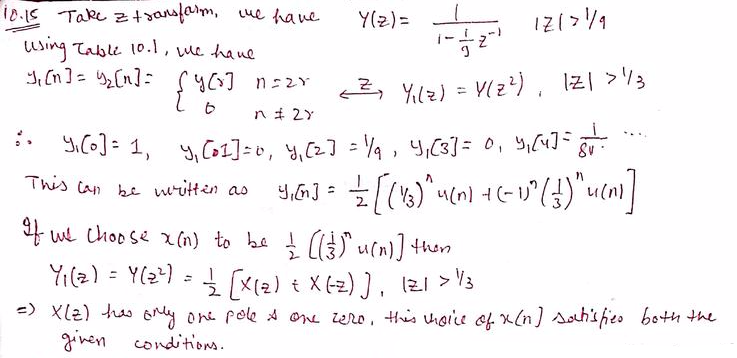 10.15 Take z transform, we have Y(z) = 1 / (1 - 1/9 z^-1) |z| > 1/9
Using Table 10.1, we have
y₁[n] = y₂[n] = { y[r] n = 2r ; 0 n ≠ 2r ⟷Z Y₁(z) = Y(z²), |z| > 1/3
∴ y₁[0] = 1, y₁[1] = 0, y₁[2] = 1/9, y₁[3] = 0, y₁[4] = 1/81 ....
This can be written as y₁[n] = 1/2 [(1/3)^n u(n) + (-1)^n (1/3)^n u(n)]
If we choose x(n) to be 1/2 [(1/3)^n u(n)] then
Y₁(z) = Y(z²) = 1/2 [X(z) + X(-z)], |z| > 1/3
=> X(z) has only one pole & one zero, this choice of x(n] satisfies both the
given conditions.